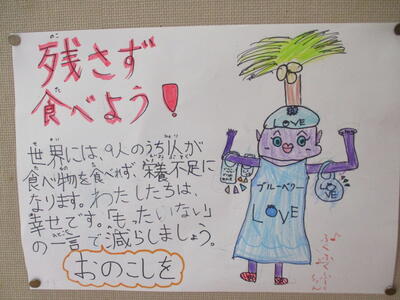 残さず
食べよう!
世界には、9人のうち1人が
食べ物を食べれず、栄養不足に
なります。わたしたちは、
幸せです。「もったいない」
の一言で減らしましょう。
おのこしを
LOVE
ブルーベリー
LOVE
LOVE